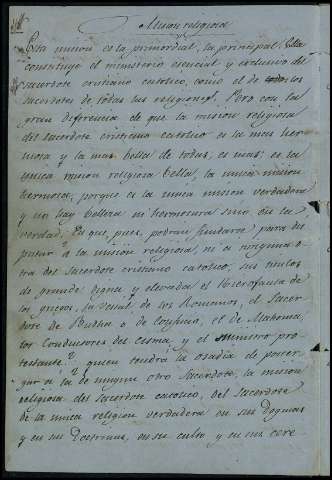 Mision religiosa
Esta mision es la primordial, la principal: Ella
constituye el ministerio esencial y exclusivo del
sacerdote cristiano catolico, como el de todos los
sacerdotes de todas las religiones. Pero con la
gran diferencia de que la mision religiosa
del sacerdote cristiano catolico es la mas her-
mosa y la mas bella de todas, es mas: es la
unica mision religiosa bella, la unica mision
hermosa, porque es la unica mision verdadera
y no hay belleza ni hermosura sino en la
verdad. En que, pues, podran fundarse para dis
putar a la mision religiosa, ni a ninguna o
tra del sacerdote cristiano catolico, sus titulos
de grande digna y elevada el Hierofanta de
los griegos, la Vestal de los Romanos, el Sacer
dote de Budha o de Confusio, el de Mahoma,
los Conductores del Cisma, y el Ministro pro
testante? quien tendra la osadia de poner
par a la de ningun otro Sacerdote, la mision
religiosa del sacerdote catolico, del sacerdote
de la unica religion verdadera en sus Dogmas
y en sus Doctrinas, en su culto y en sus cere